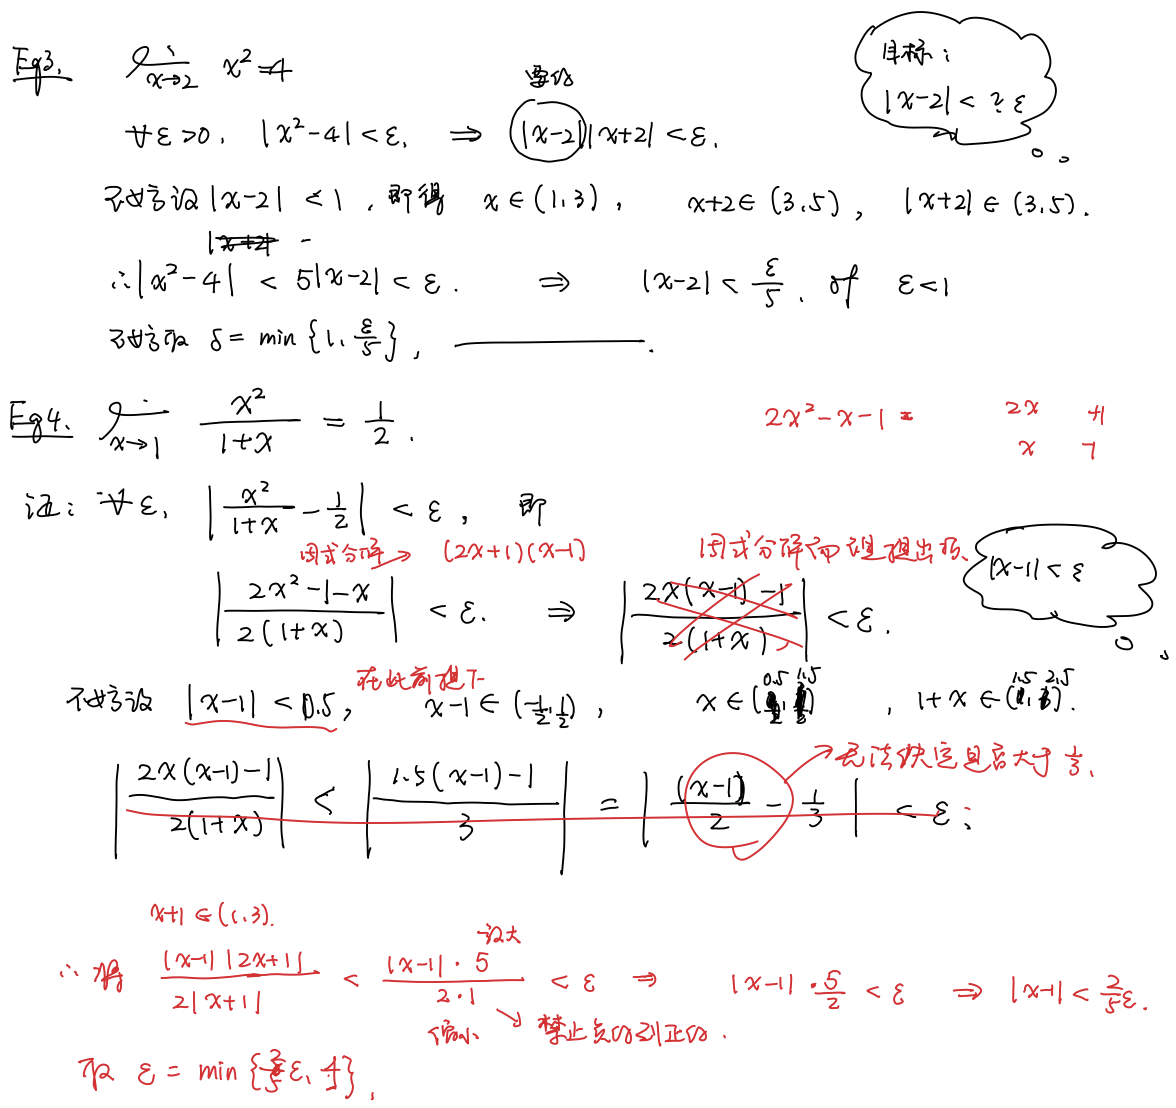 Eg3. lim x→2 x²=4
目标:
|x-2| < ? ε
要的
∀ε>0. |x²-4|<ε. ⇒ |x-2||x+2|<ε.
不妨设|x-2|<1, 即得 x∈(1,3), x+2∈(3,5), |x+2|∈(3,5).
|x+2|
∴|x²-4| < 5|x-2| < ε. ⇒ |x-2| < ε/5, of ε<1
不妨取 δ = min{1, ε/5}, ————.
Eg4. lim x→1 x²/(1+x) = 1/2.
2x²-x-1 = 2x +1
x -1
证: ∀ε, |x²/(1+x) - 1/2| < ε, 即
因式分解→ (2x+1)(x-1)
因式分解而非提出项.
|x-1|<ε
|(2x²-1-x)/(2(1+x))| < ε. ⇒ |(2x(x-1)-1)/(2(1+x))| < ε.
在此前提下
不妨设 |x-1|<0.5, x-1∈(-1/2,1/2), x∈(0.5,1.5), 1+x∈(1.5,2.5).
|(2x(x-1)-1)/(2(1+x))| < |(1.5(x-1)-1)/3| = |(x-1)/2 - 1/3| < ε;
→无法确定是否大于1/3.
x+1∈(1,3).
∴将 |x-1||2x+1|/(2|x+1|) < |x-1|·5/(2·1) < ε ⇒ |x-1|·5/2 < ε ⇒ |x-1| < 2/5 ε.
缩小 → 禁止负的到正的.
取 ε = min{2/5 ε, 1},